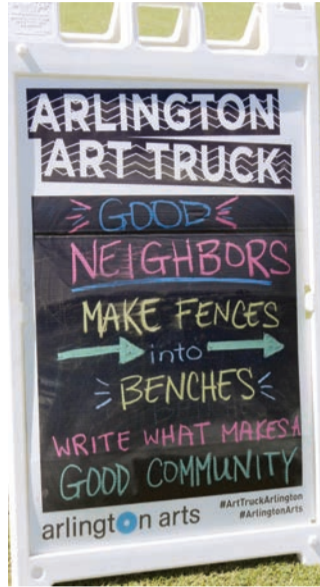 ARLINGTON
ART TRUCK
GOOD
NEIGHBORS
MAKE FENCES
into
BENCHES
WRITE WHAT MAKES A
GOOD COMMUNITY
#ArtTruckArlington
#ArlingtonArts
arlington arts